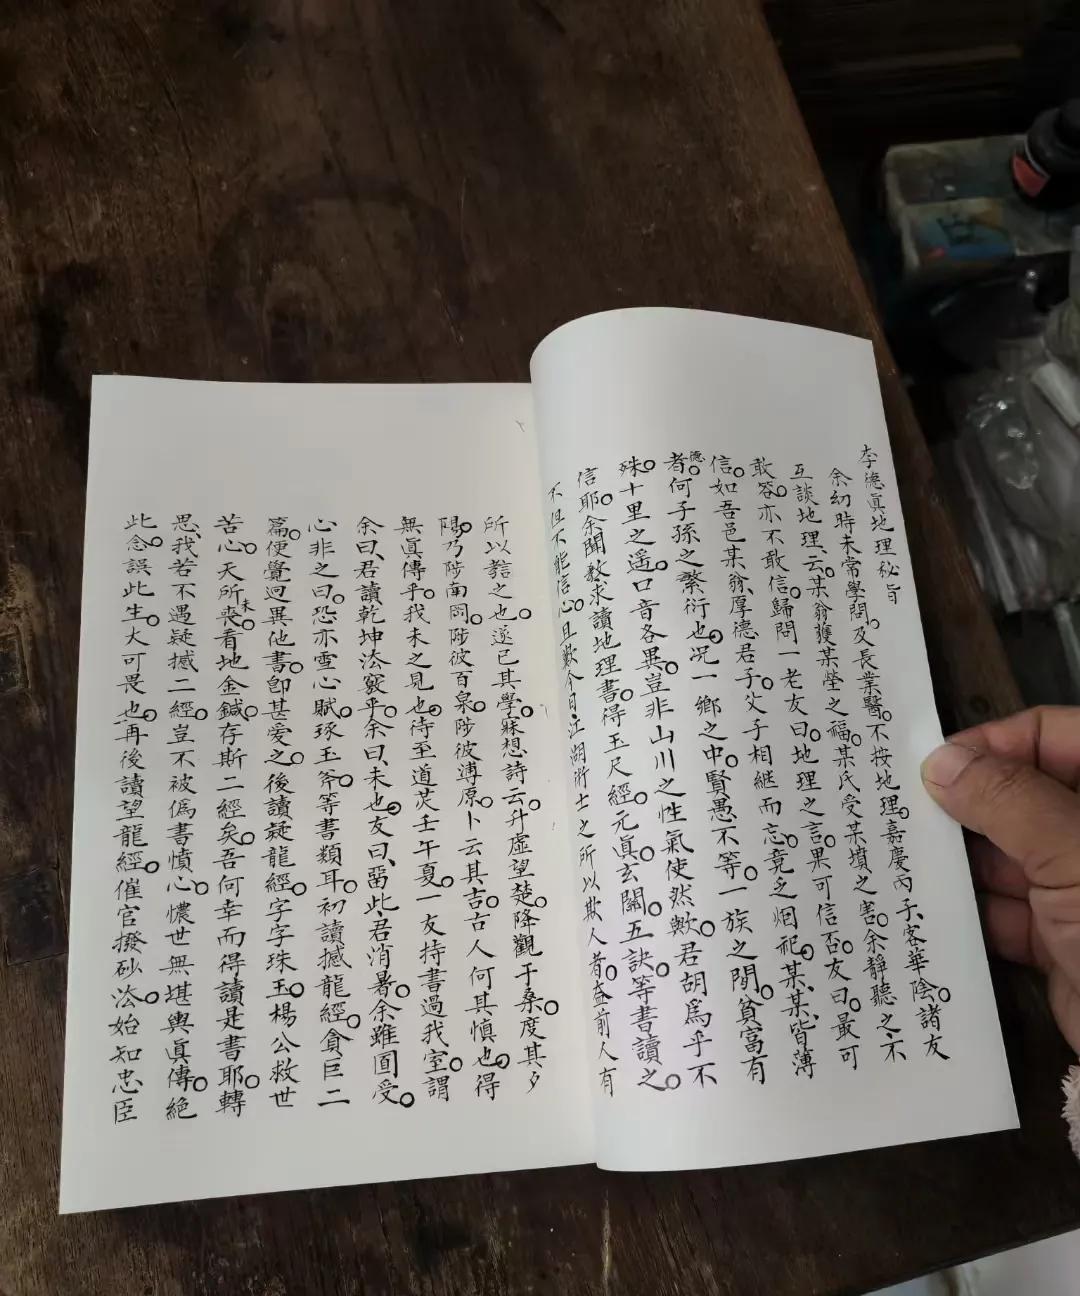 李德真地理秘旨
余幼時未常學問。及長業醫。不按地理。嘉慶丙子、客華陰。諸友
互談地理、云。某翁獲某塋之福。某氏受某墳之害。余靜聽之、不
敢答。亦不敢信。歸問一老友曰。地理之言。果可信否。友曰。最可
信。如吾邑某翁、厚德君子。父子相継而忘。竟乏烟祀。某某、皆薄
德者。何子孫之繁衍也。况一鄉之中。賢愚不等。一族之間。貧富有
殊。十里之遥。口音各異。豈非山川之性氣使然歟。君胡爲乎不
信耶。余聞教、求讀地理書。得玉尺經。元真。玄關。五訣。等書讀之。
不但不能信心。且歎今日江湖術士之所以欺人者。盖前人有
所以教之也。遂已其學。寐想詩云。升虛望楚。降觀于桑。度其夕
陽。乃陟南岡。陟彼百泉。陟彼溥原。卜云其吉。古人何其慎也。得
無真傳乎。我未之見也。待至道光壬午夏。一友持書過我室。謂
余曰、君讀乾坤法竅乎。余曰、未也。友曰、畱此君消暑。余雖面受。
心非之曰。恐亦雪心賦、琢玉斧。等書類耳。初讀撼龍經。貪巨二
篇。便覺迥異他書。卽甚爱之。後讀疑龍經。字字珠玉。楊公救世
苦心。天所未喪。看地金鍼。存斯二經矣。吾何幸而得讀是書耶。轉
思、我若不遇疑撼二經。豈不被僞書憤心。懷世無堪輿真傳。絕
此念。誤此生。大可畏也。再後讀望龍經。催官撥砂法。始知忠臣